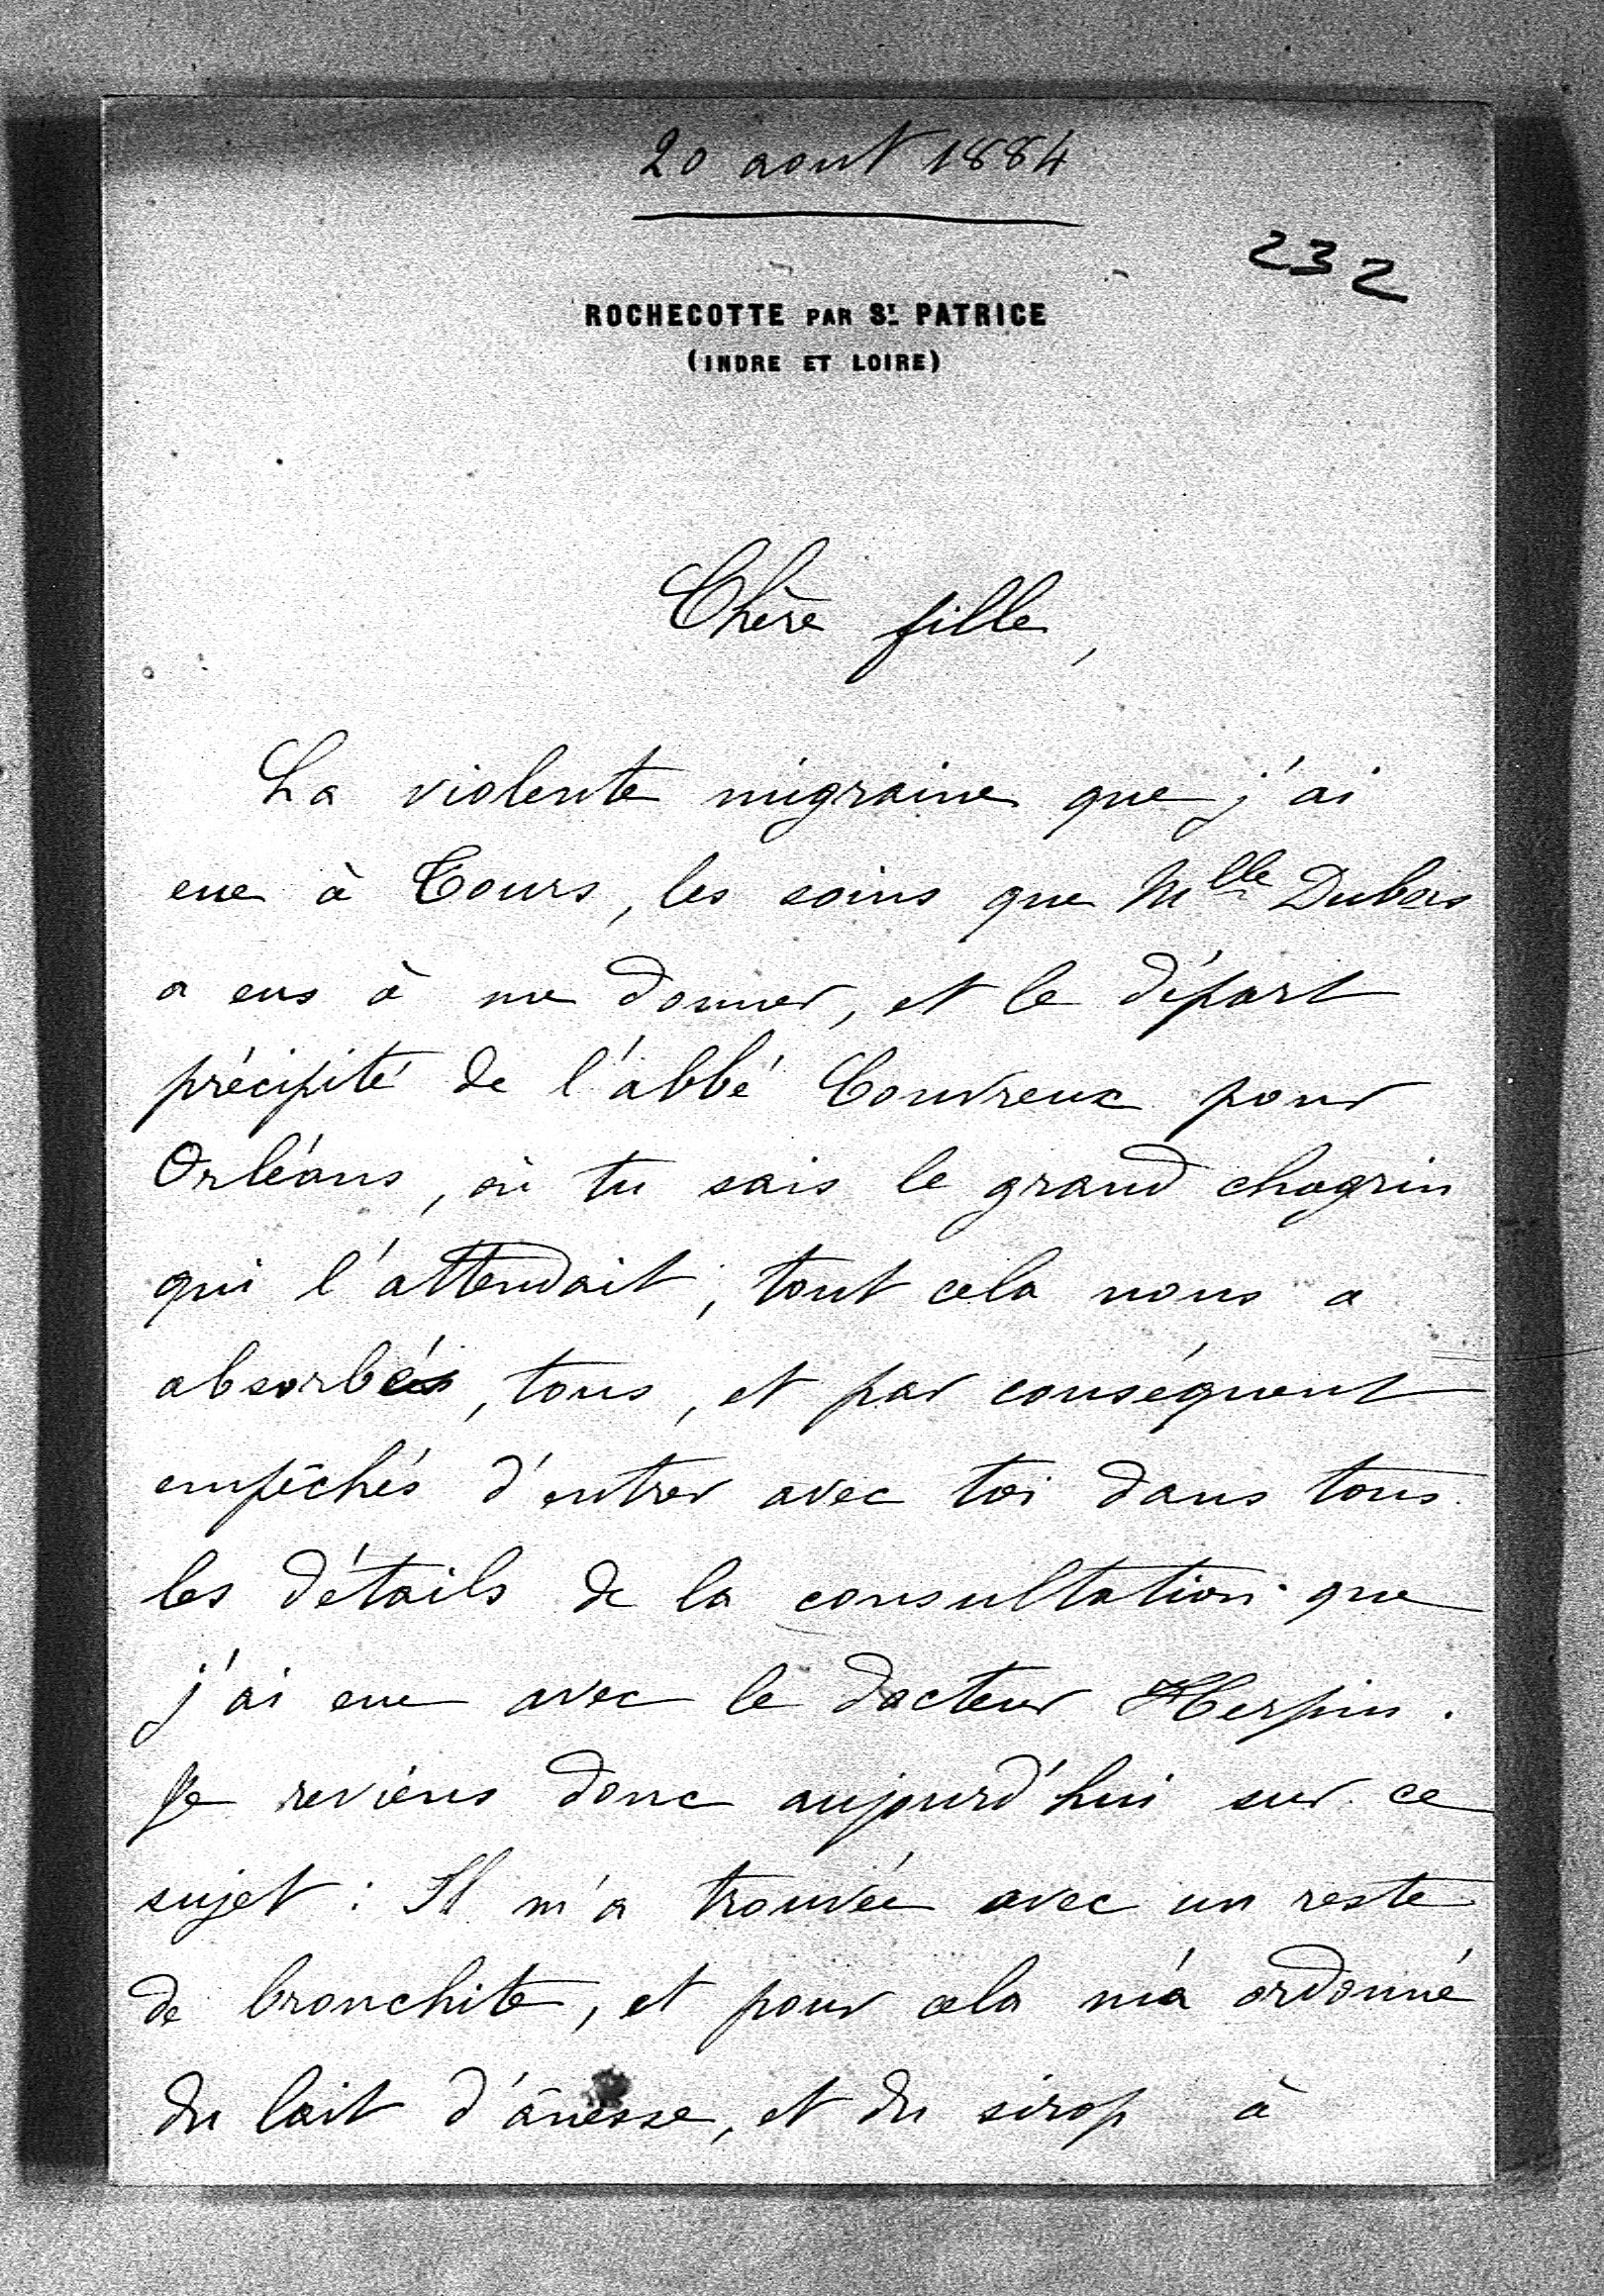 20 aout 1884
232
ROCHECOTTE PAR ST. PATRICE
(INDRE ET LOIRE)
Chère fille,
La violente migraine que j'ai
eue à Tours, les soins que Mlle Dubois
a eus à me donner, et le départ
précipité de l'abbé Couvreux pour
Orléans, où tu sais le grand chagrin
qui l'attendait, tout cela nous a
absorbés, tous, et par conséquent
empêchés d'entrer avec toi dans tous
les détails de la consultation que
j'ai eue avec le docteur Herpin.
Je reviens donc aujourd'hui sur ce
sujet : Il m'a trouvée avec un reste
de bronchite, et pour cela m'a ordonné
du lait d'ânesse, et du sirop à